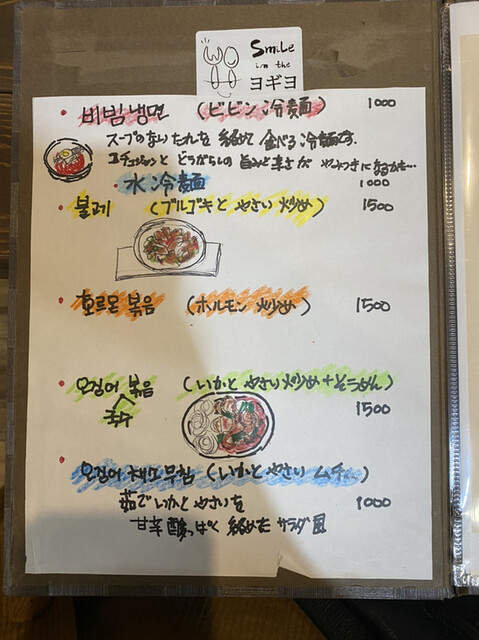 Smile
in the
ヨギヨ
비빔냉면 (ビビン冷麺) 1000
スープのないたれを絡めて食べる冷麺です。
コチュジャンととうがらしの旨みと辛さがやみつきになるかも…
水冷麺 1000
불고기 (プルゴギとやさい炒め) 1500
호르몬 볶음 (ホルモン炒め) 1500
오징어 볶음 (いかとやさい炒め+そうめん)
국수 1500
오징어 채소무침 (いかとやさい ムチ...)
茹でいかとやさいを 1000
甘辛酸っぱく絡めたサラダ風